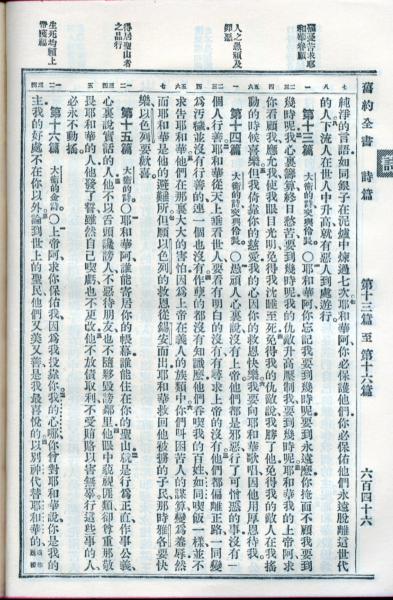 舊約全書 詩篇 第十三篇 至 第十六篇 六百四十六
詩
和華眷顧
純淨的言語如同銀子在泥爐中煉過七次耶和華阿你必保護他們你必保佑他們永遠脫離這世代
的人下流人在世人中升高就有惡人到處遊行。
第十三篇 大衞的詩交與伶長。○耶和華阿你忘記我要到幾時呢要到永遠麼你掩面不顧我要到
幾時呢我心裏籌算終日愁苦要到幾時呢我的仇敵升高壓制我要到幾時呢耶和華我的上帝阿求
你看顧我應允我使我眼目光明免得我沈睡至死免得我的仇敵說我勝了他免得我的敵人在我搖
動的時候喜樂但我倚靠你的慈愛我的心因你的救恩快樂我要向耶和華歌唱因他用厚恩待我
人之愚頑及
罪惡
第十四篇 大衞的詩交與伶長。○愚頑人心裏說沒有上帝他們都是邪惡行了可憎惡的事沒有一
個人行善耶和華從天上垂看世人要看有明白的沒有有尋求上帝的沒有他們都偏離正路一同變
爲污穢並沒有行善的連一個也沒有作孽的都沒有知識麼他們吞喫我的百姓如同喫飯一樣並不
求告耶和華他們在那裏大大的害怕因爲上帝在義人的族類中你們叫困苦人的謀算變爲羞辱然
而耶和華是他的避難所但願以色列的救恩從錫安而出耶和華救回他被擄的子民那時雅各要快
樂以色列要歡喜
得居聖山者
之品行
第十五篇 大衞的詩。○耶和華阿誰能寄居你的帳幕誰能住在你的聖山就是行爲正直作事公義
心裏說實話的人他不以舌頭讒謗人不惡待朋友也不隨夥毀謗鄰里他眼中藐視匪類卻尊重那敬
畏耶和華的人他發了誓雖然自己喫虧也不更改他不放債取利不受賄賂以害無辜行這些事的人
必永不動搖
生死均賴上
帝獲福
第十六篇 大衞的金詩。○上帝阿求你保佑我因爲我投靠你我的心哪你曾對耶和華說你是我的
主我的好處不在你以外論到世上的聖民他們又美又善是我最喜悅的以別神代替耶和華的